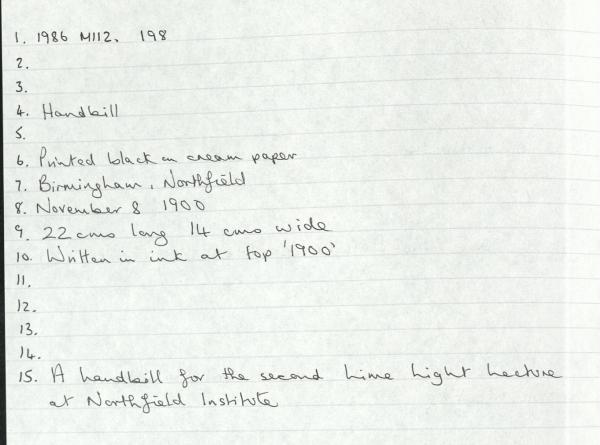 1. 1986 M112. 198
2.
3.
4. Handbill
5.
6. Printed black on cream paper
7. Birmingham, Northfield
8. November 8 1900
9. 22 cms long 14 cms wide
10. Written in ink at top '1900'
11.
12.
13.
14.
15. A handbill for the second Lime Light Lecture
at Northfield Institute